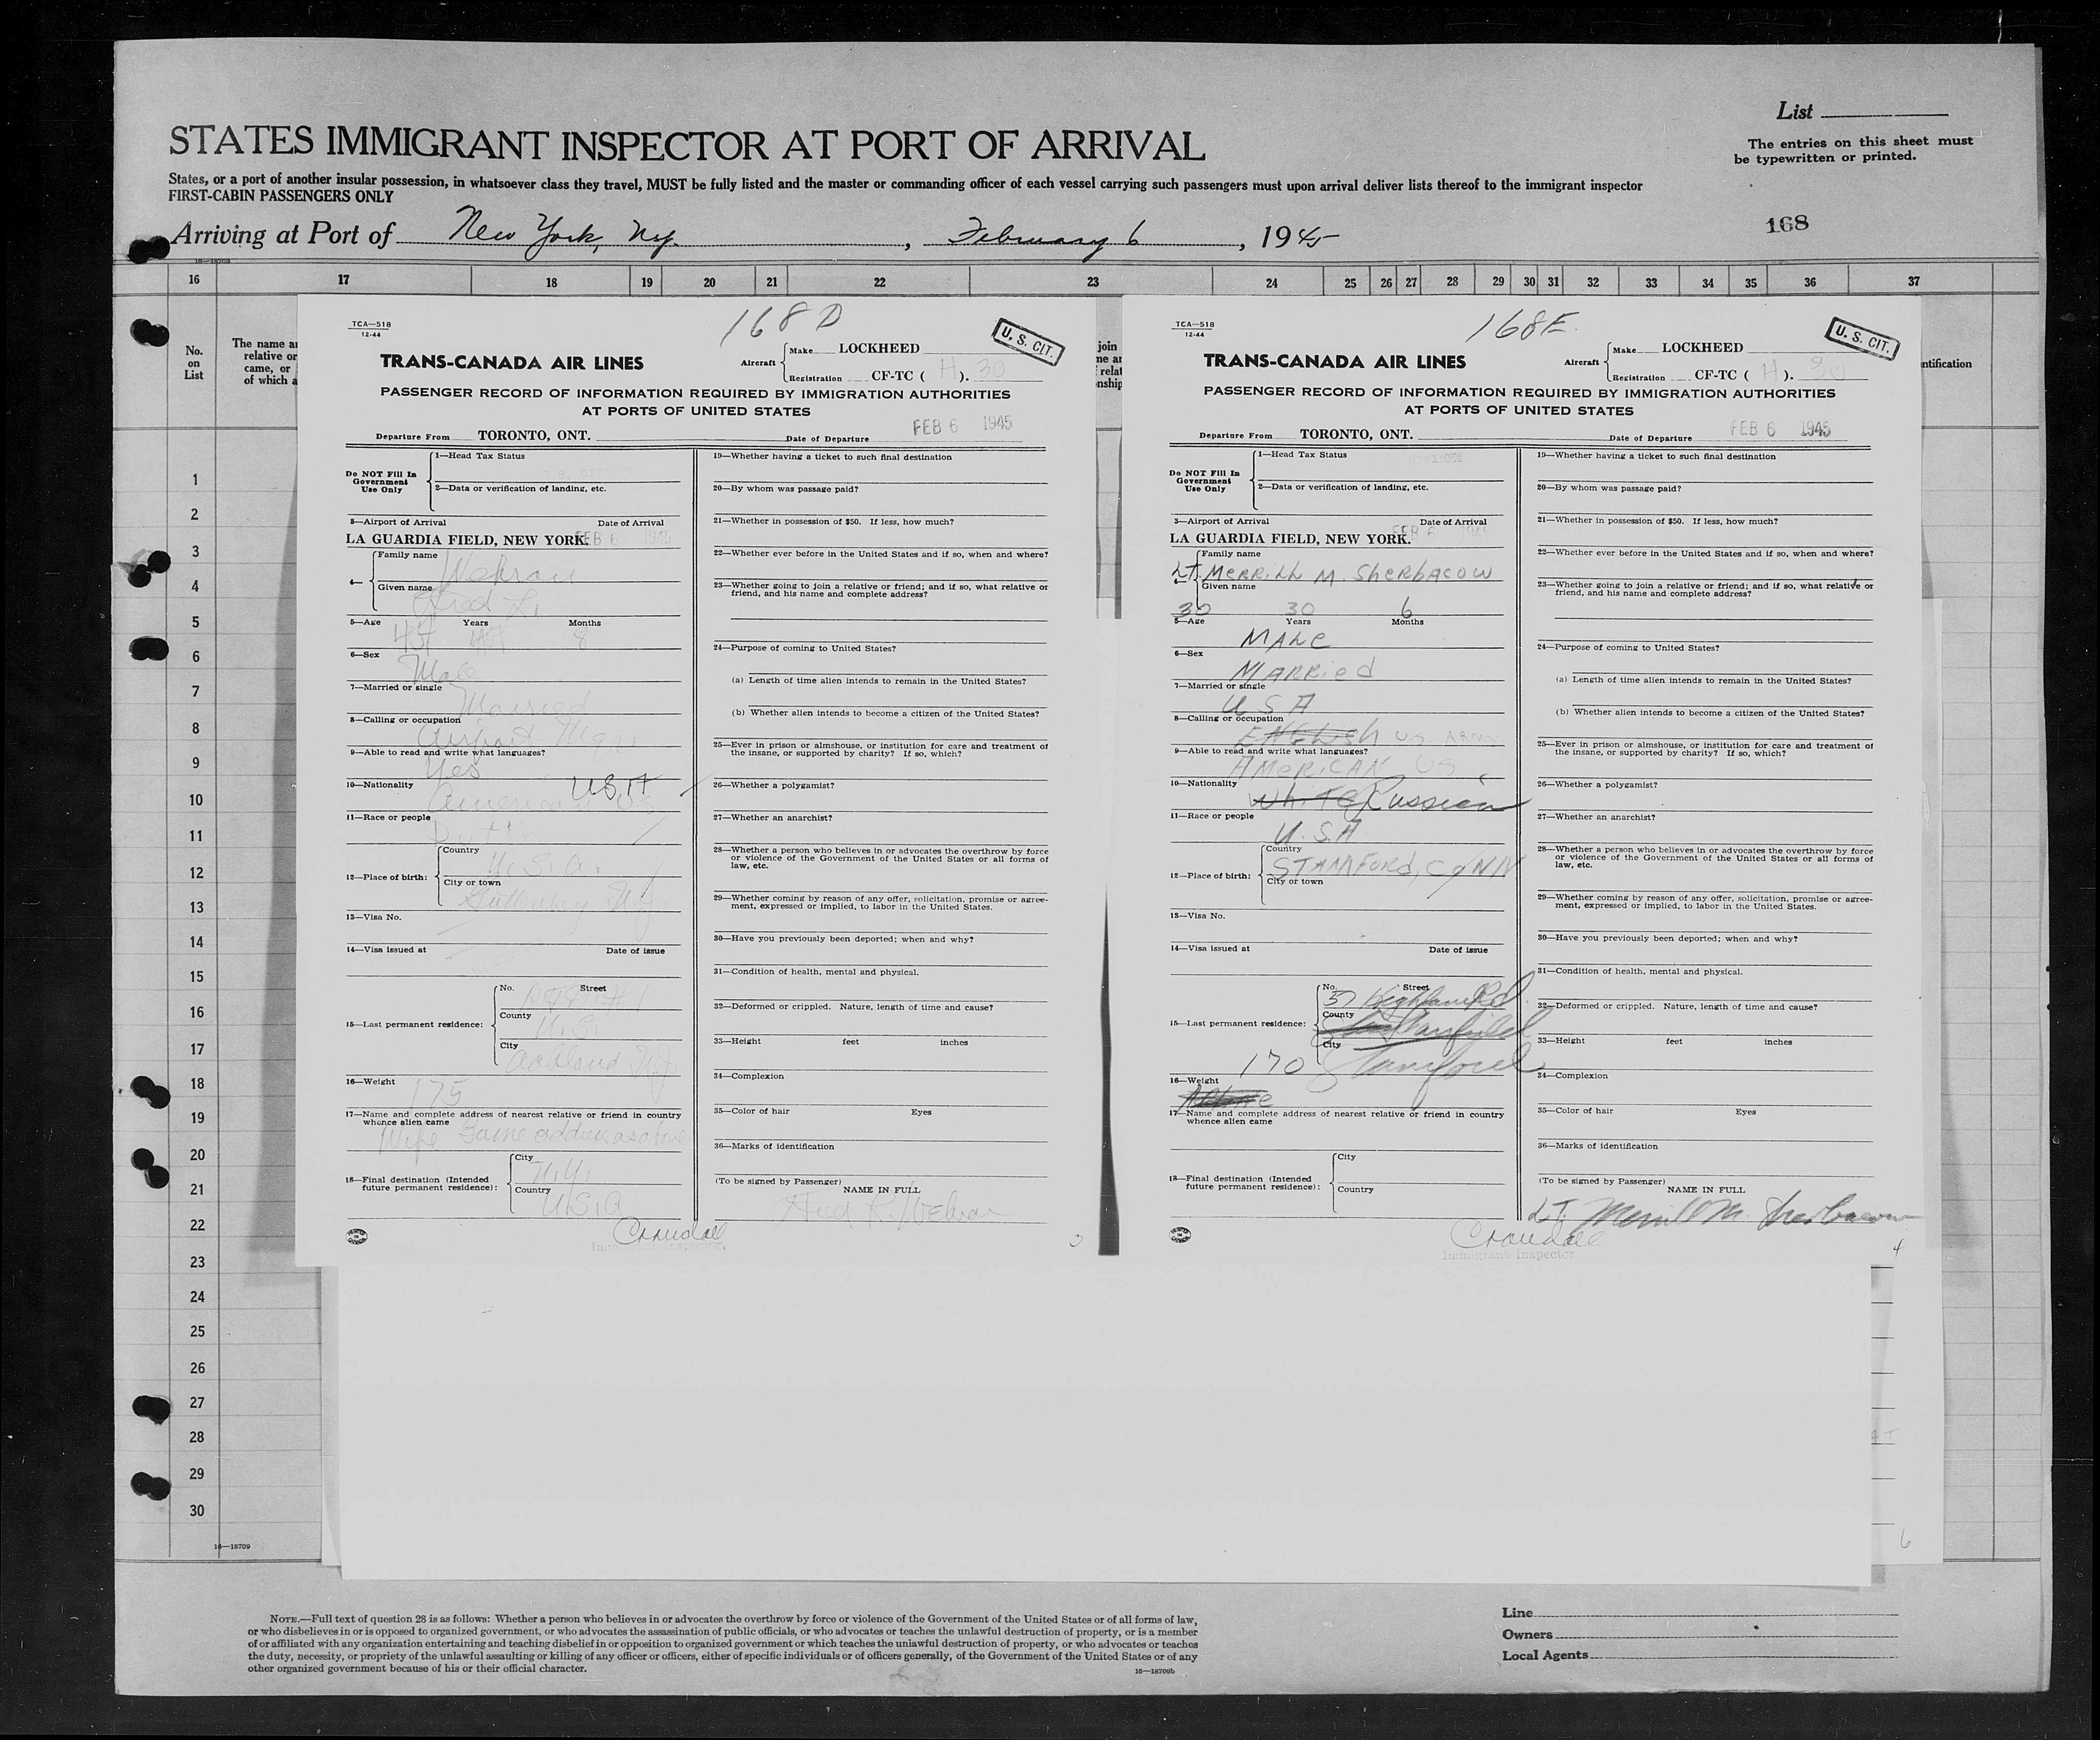 List
The entries on this sheet must
be typewritten or printed.
STATES IMMIGRANT INSPECTOR AT PORT OF ARRIVAL
States, or a port of another insular possession, in whatsoever class they travel, MUST be fully listed and the master or commanding officer of each vessel carrying such passengers must upon arrival deliver lists thereof to the immigrant inspector
FIRST-CABIN PASSENGERS ONLY
168
Arriving at Port of New York, Ny. , February 6 , 1945
16 17 18 19 20 21 22 23 24 25 26 27 28 29 30 31 32 33 34 35 36 37
No.
on
List
The name a
relative or
came, or
of which a
168 D
TCA—518
12-44
U. S. CIT.
TRANS-CANADA AIR LINES
Aircraft
Make LOCKHEED
Registration CF-TC ( H ). 30
PASSENGER RECORD OF INFORMATION REQUIRED BY IMMIGRATION AUTHORITIES
AT PORTS OF UNITED STATES
Departure From TORONTO, ONT. Date of Departure FEB 6 1945
Do NOT Fill In
Government
Use Only
1—Head Tax Status
2—Data or verification of landing, etc.
3—Airport of Arrival Date of Arrival
LA GUARDIA FIELD, NEW YORK. FEB 6 1945
4—
Family name
Given name
5—Age Years Months
45 8
6—Sex
Male
7—Married or single
Married
8—Calling or occupation
Airport
9—Able to read and write what languages?
Yes
10—Nationality USA
American US
11—Race or people
12—Place of birth:
Country
U.S.A.
City or town
13—Visa No.
14—Visa issued at Date of issue
15—Last permanent residence:
No. Street
County
City
Oakland NJ
16—Weight
175
17—Name and complete address of nearest relative or friend in country
whence alien came
Wife Same address as above
18—Final destination (Intended
future permanent residence):
City
N.Y.
Country
U.S.A
Crandall
Immigrant Inspector.
19—Whether having a ticket to such final destination
20—By whom was passage paid?
21—Whether in possession of $50. If less, how much?
22—Whether ever before in the United States and if so, when and where?
23—Whether going to join a relative or friend; and if so, what relative or
friend, and his name and complete address?
24—Purpose of coming to United States?
(a) Length of time alien intends to remain in the United States?
(b) Whether alien intends to become a citizen of the United States?
25—Ever in prison or almshouse, or institution for care and treatment of
the insane, or supported by charity? If so, which?
26—Whether a polygamist?
27—Whether an anarchist?
28—Whether a person who believes in or advocates the overthrow by force
or violence of the Government of the United States or all forms of
law, etc.
29—Whether coming by reason of any offer, solicitation, promise or agree-
ment, expressed or implied, to labor in the United States.
30—Have you previously been deported; when and why?
31—Condition of health, mental and physical.
32—Deformed or crippled. Nature, length of time and cause?
33—Height feet inches
34—Complexion
35—Color of hair Eyes
36—Marks of identification
(To be signed by Passenger)
NAME IN FULL
join
ntification
168E
TCA—518
12-44
U. S. CIT.
TRANS-CANADA AIR LINES
Aircraft
Make LOCKHEED
Registration CF-TC ( H ). 30
PASSENGER RECORD OF INFORMATION REQUIRED BY IMMIGRATION AUTHORITIES
AT PORTS OF UNITED STATES
Departure From TORONTO, ONT. Date of Departure FEB 6 1945
Do NOT Fill In
Government
Use Only
1—Head Tax Status
2—Data or verification of landing, etc.
3—Airport of Arrival Date of Arrival
LA GUARDIA FIELD, NEW YORK. FEB 6 1945
Family name
LT. MERRILL M. SHERBACOW
Given name
30 30 6
5—Age Years Months
MALE
6—Sex
MARRIED
7—Married or single
USA
8—Calling or occupation
ENGLISH U.S. ARMY
9—Able to read and write what languages?
AMERICAN US
10—Nationality
White Russian
11—Race or people
U.S.A.
12—Place of birth:
Country
STAMFORD, CONN
City or town
13—Visa No.
14—Visa issued at Date of issue
15—Last permanent residence:
No. Street
County
City
170 Stamford
16—Weight
17—Name and complete address of nearest relative or friend in country
whence alien came
18—Final destination (Intended
future permanent residence):
City
Country
Crandall
Immigrant Inspector
19—Whether having a ticket to such final destination
20—By whom was passage paid?
21—Whether in possession of $50. If less, how much?
22—Whether ever before in the United States and if so, when and where?
23—Whether going to join a relative or friend; and if so, what relative or
friend, and his name and complete address?
24—Purpose of coming to United States?
(a) Length of time alien intends to remain in the United States?
(b) Whether alien intends to become a citizen of the United States?
25—Ever in prison or almshouse, or institution for care and treatment of
the insane, or supported by charity? If so, which?
26—Whether a polygamist?
27—Whether an anarchist?
28—Whether a person who believes in or advocates the overthrow by force
or violence of the Government of the United States or all forms of
law, etc.
29—Whether coming by reason of any offer, solicitation, promise or agree-
ment, expressed or implied, to labor in the United States.
30—Have you previously been deported; when and why?
31—Condition of health, mental and physical.
32—Deformed or crippled. Nature, length of time and cause?
33—Height feet inches
34—Complexion
35—Color of hair Eyes
36—Marks of identification
(To be signed by Passenger)
NAME IN FULL
LT. Merrill M. Sherbacow
4
1
2
3
4
5
6
7
8
9
10
11
12
13
14
15
16
17
18
19
20
21
22
23
24
25
26
27
28
29
30
6
16—18709
NOTE.—Full text of question 28 is as follows: Whether a person who believes in or advocates the overthrow by force or violence of the Government of the United States or of all forms of law,
or who disbelieves in or is opposed to organized government, or who advocates the assassination of public officials, or who advocates or teaches the unlawful destruction of property, or is a member
of or affiliated with any organization entertaining and teaching disbelief in or opposition to organized government or which teaches the unlawful destruction of property, or who advocates or teaches
the duty, necessity, or propriety of the unlawful assaulting or killing of any officer or officers, either of specific individuals or of officers generally, of the Government of the United States or of any
other organized government because of his or their official character.
16—18709b
Line
Owners
Local Agents